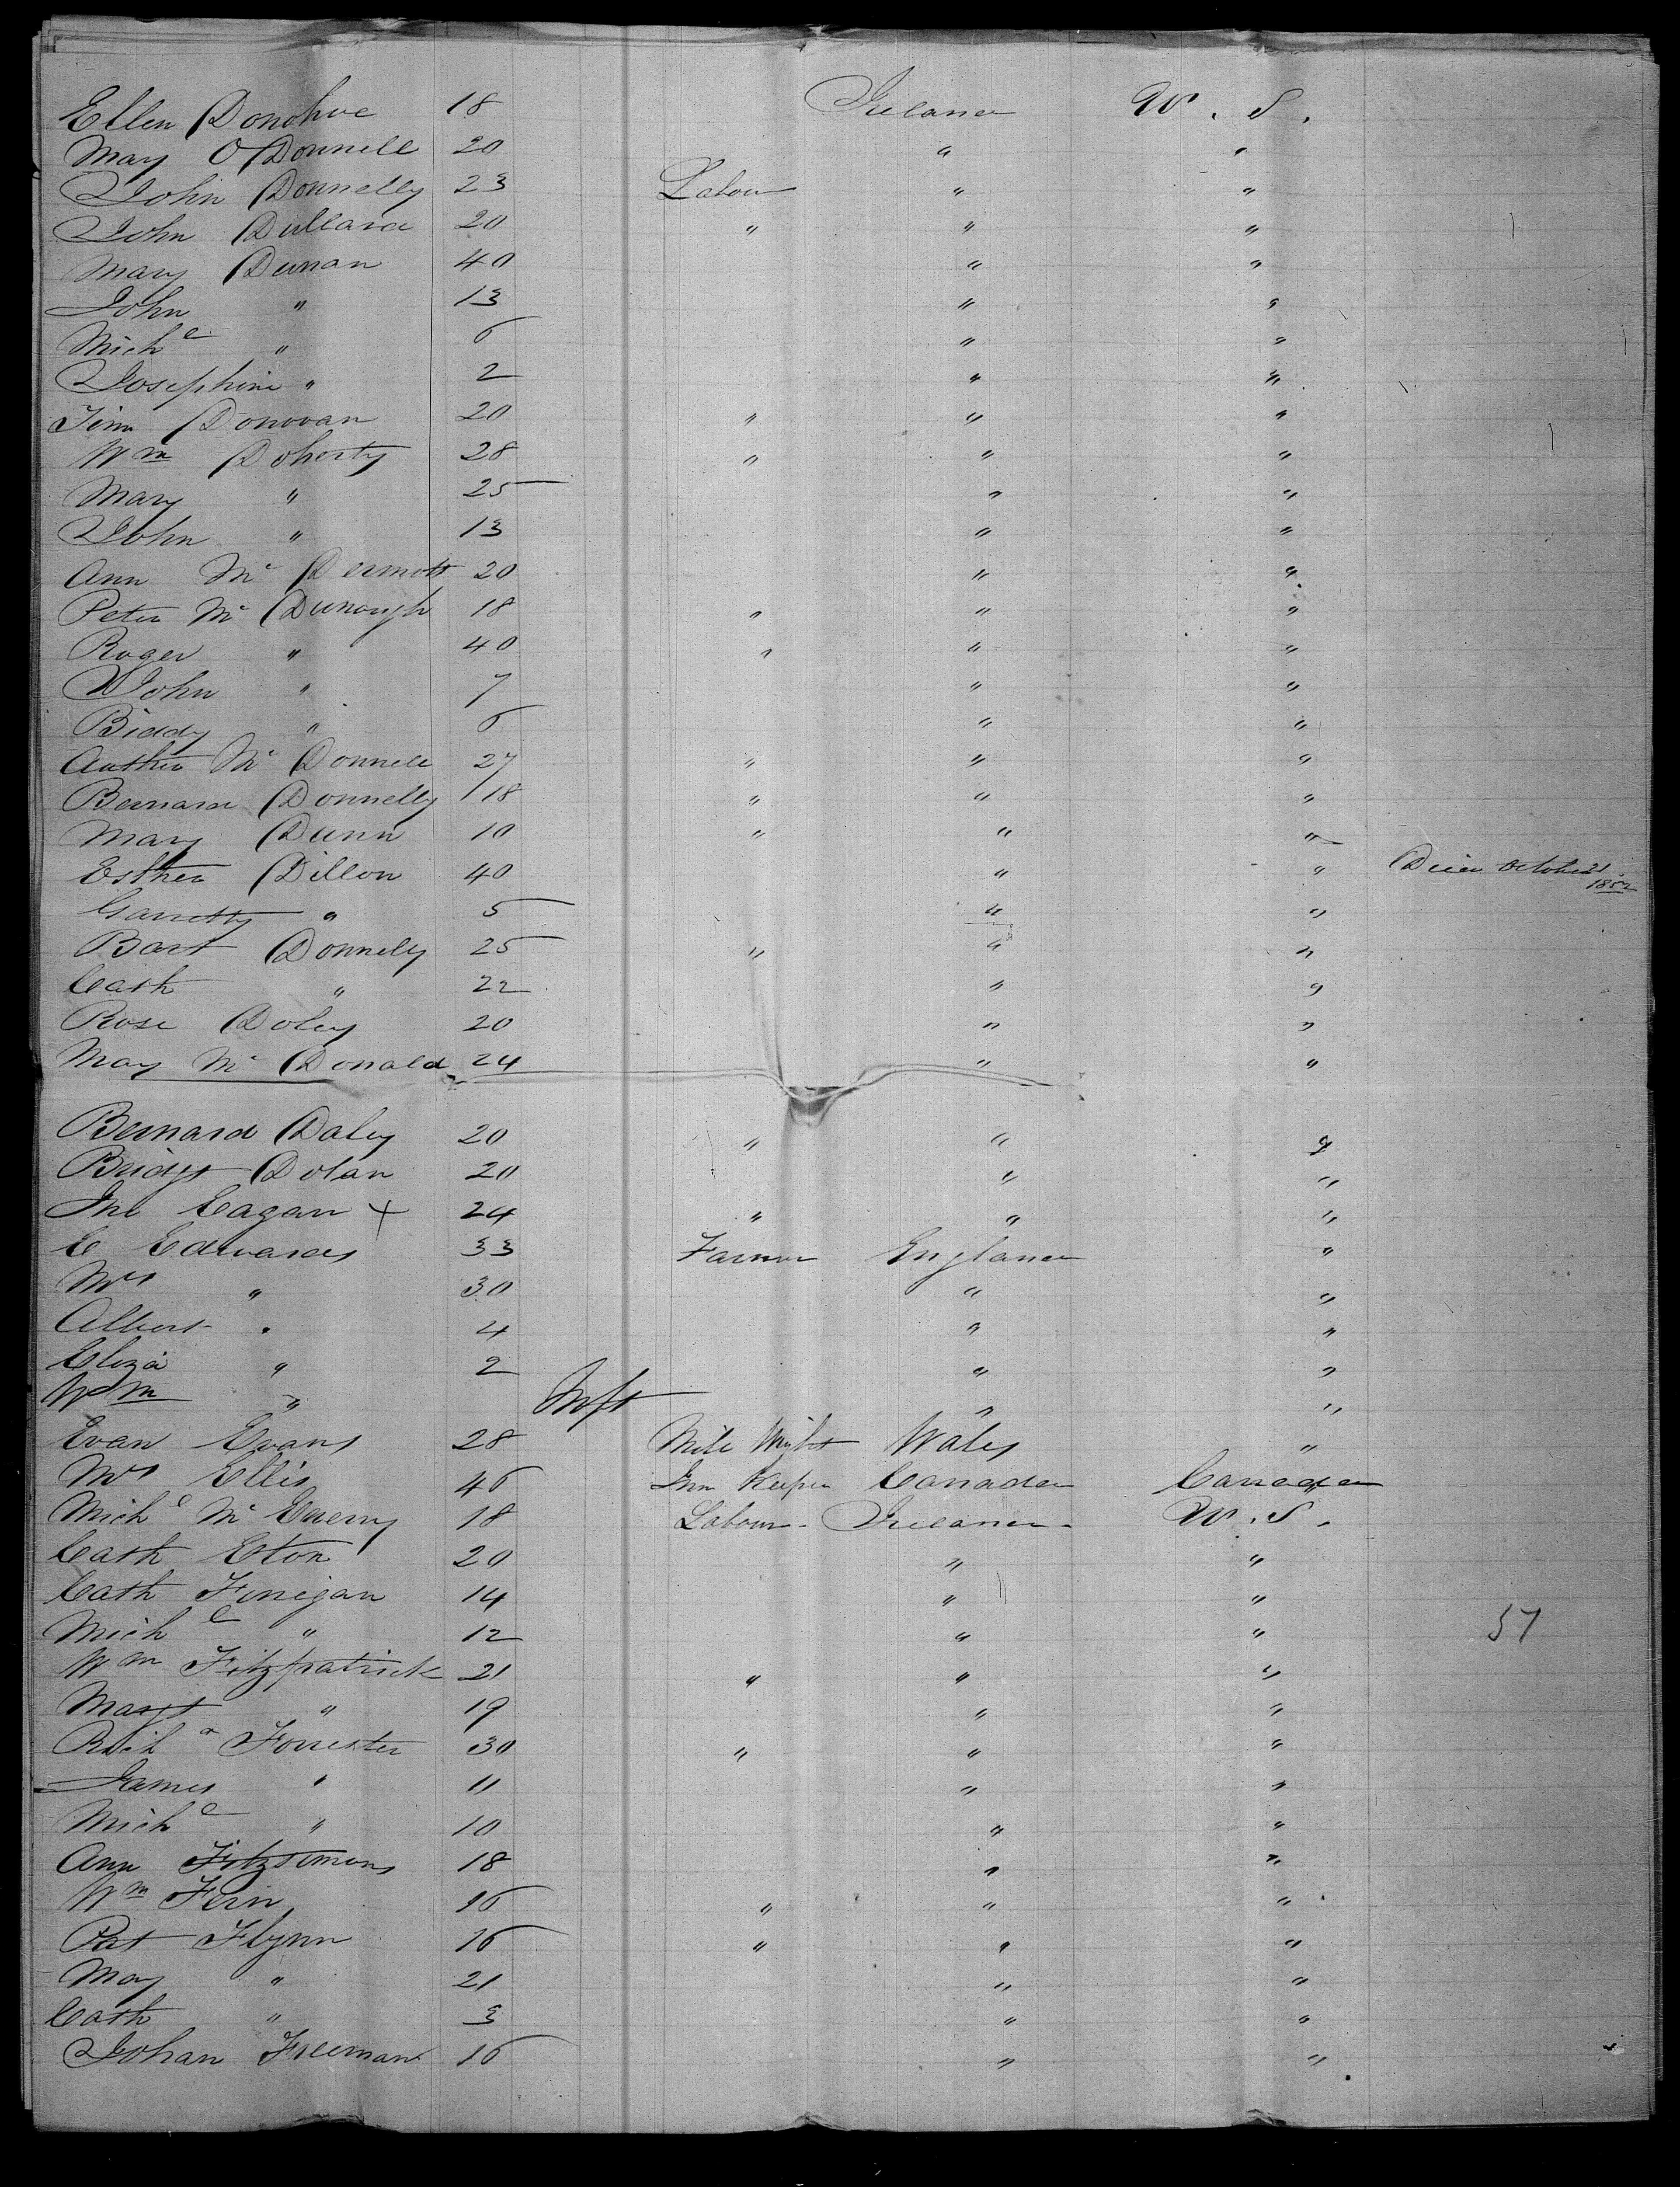 Ellen Donohue 18 Ireland U. S.
Mary O Donnell 20 " "
John Donnelly 23 Labour " "
John Dullard 20 " " "
Mary Dunan 40 " "
John " 13 " "
Mich l " 6 " "
Josephine " 2 " "
Tim Donovan 20 " " "
Wm Doherty 28 " " "
Mary " 25 " "
John " 13 " "
Ann Mc Dermott 20 " "
Peter Mc Dunough 18 " " "
Roger " 40 " " "
John " 7 " "
Biddy " 6 " "
Mc Donnell 27 " " "
Bernard Donnelly 18 " " "
Mary Dunn 10 " " "
Esther Dillon 40 " " Died October 21 1852
Garretty " 5 " "
Bart Donnely 25 " " "
Cath " 22 " "
Rose Doley 20 " "
Mary Mc Donald 24 " "
Bernard Daley 20 " " "
Bridgt Dolan 20 " "
Jno Eagan + 24 " " "
E Edwards 33 Farmer England "
Mrs " 30 " "
Albert " 4 " "
Eliza " 2 " "
Wm " Inft " "
Evan Evans 28 Mill Wright Wales "
Mrs Ellis 46 Inn Keeper Canada Canada
Mich l Mc Enerny 18 Labour Ireland U. S.
Cath Eton 20 " "
Cath Finigan 14 " "
Mich l " 12 " " 57
Wm Fitzpatrick 21 " " "
Margt " 19 " "
Rich d Forrester 30 " " "
James " 11 " "
Mich l " 10 " "
Ann Fitzsimons 18 " "
Wm Fein 16 " " "
Pat Flynn 16 " " "
May " 21 " "
Cath " 3 " "
Johan Freeman 16 " "